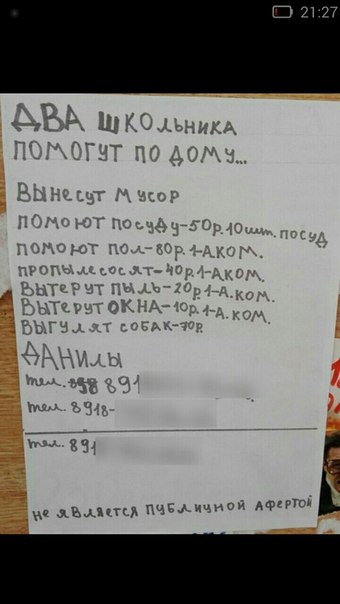 21:27
ДВА ШКОЛЬНИКА
ПОМОГУТ ПО ДОМУ...
ВЫНЕСУТ МУСОР
ПОМОЮТ ПОСУДУ-50р.10шт.ПОСУД
ПОМОЮТ ПОЛ-80р.1-А.КОМ.
ПРОПЫЛЕСОСЯТ-40р.1-А.КОМ.
ВЫТЕРУТ ПЫЛЬ-20р.1-А.КОМ.
ВЫТЕРУТ ОКНА-10р.1-А.КОМ.
ВЫГУЛЯТ СОБАК-70р.
ДАНИЛЫ
тел. 891
тел. 8918-
тел. 891
НЕ ЯВЛЯЕТСЯ ПУБЛИЧНОЙ АФЕРТОЙ